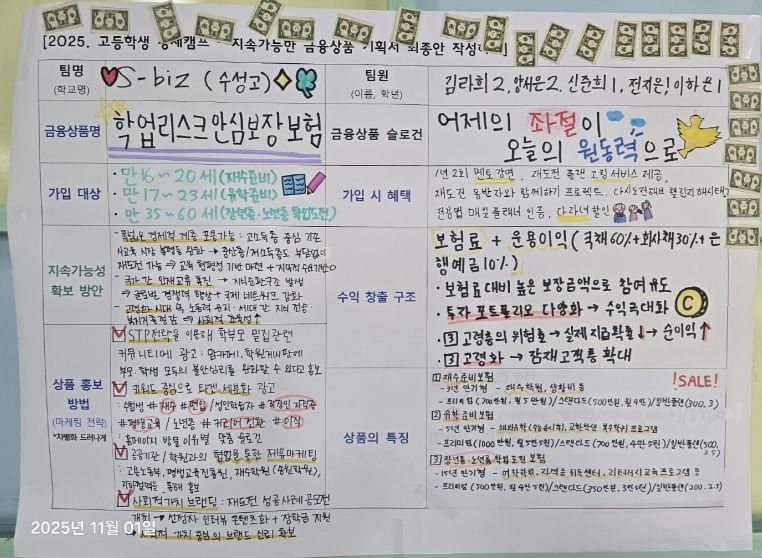 [2025. 고등학생 경제캠프 - 지속가능한 금융상품 기획서 최종안 작성
팀명
(학교명)
S-biz (수성고)
팀원
(이름, 학년)
김라희 2, 신준희 1, 전지은, 이하은 1
금융상품명
학업리스크안심보장보험
금융상품 슬로건
어제의 좌절이
오늘의 원동력으로
가입 대상
• 만 16~20세 (재수준비)
• 만 17~23세 (유학준비)
• 만 35~60세 (장년층·노년층 학업도전)
가입 시 혜택
1년 2회 멘토강연, 재도전 플랜 코칭 서비스 제공,
재도전 동반자와 함께하기 프로젝트,
인증, 다자녀할인
지속가능성
확보 방안
- 폭넓은 경제적 계층 포용가능 : 고소득층 중심 기존
사교육 시장 불평등 완화 → 중산층/저소득층도 부담없이
재도전 가능 → 교육 형평성 기반 마련 + 지속적 수요기반
- 국가 간 인재교류 촉진 → 지식순환구조 형성
→ 글로벌 경쟁력 향상 + 국제 네트워크 강화
- 고령화 시대 속 노동력 유지·세대 간 지식 전승
→ 사회적 효용성↑
수익 창출 구조
보험료 + 운용이익 (국채 60% + 회사채 30% + 은
행예금 10%)
• 보험료 대비 높은 보장금액으로 참여 유도
• 투자 포트폴리오 다양화 → 수익극대화
• 3 고령층의 위험률 → 실제 지급확률↓ → 순이익↑
• 3 고령화 → 잠재고객층 확대
상품 홍보
방법
(마케팅 전략)
*차별화 드러나게
STP전략을 이용해 학부모 밀집관련
커뮤니티에 광고 : 맘카페, 학원게시판에
부모·학생 모두의 불안심리를 완화할 수 있다고 홍보
키워드 중심으로 타겟 세분화 광고
: 수험생 #재수 #편입 / 성인학습자 #직장인 자격증
#평생교육 / 노년층 #커리어 전환 #이직
: 홈페이지 방문 이유별 맞춤 슬로건
공공기관 / 학원과의 협업을 통한 제휴마케팅
: 고용노동부, 평생교육진흥원, 재수학원
통해 홍보
사회적가치 브랜딩 : 재도전 성공사례 공모전
개최 → 선정자 인터뷰 콘텐츠화 + 장학금 지원
→ 사회적 가치 중심의 브랜드 신뢰 확보
상품의 특징
!SALE!
1 재수준비보험
- 3년 만기형 - 재수학원, 생활비 등
- 프리미엄 (700만원, 월 5만원) / 스탠다드 (500만원, 월 4만) / 일반플랜 (300, 3)
2 유학 준비보험
- 5년 만기형 - 교환학생·복수학위 프로그램
- 프리미엄 (1000만원, 월 5만5천) / 스탠다드 (700만원, 4만 5천) / 일반플랜 (500,
3.5)
3 장년층·노년층 학업도전 보험
- 15년 만기형 - 어학학원, 자격증 취득센터, 리터러시교육프로그램 등
- 프리미엄 (500만원, 월 4만 5천) / 스탠다드 (350만원, 3만 5천) / 일반플랜 (200, 2.5)
2025년 11월 01일